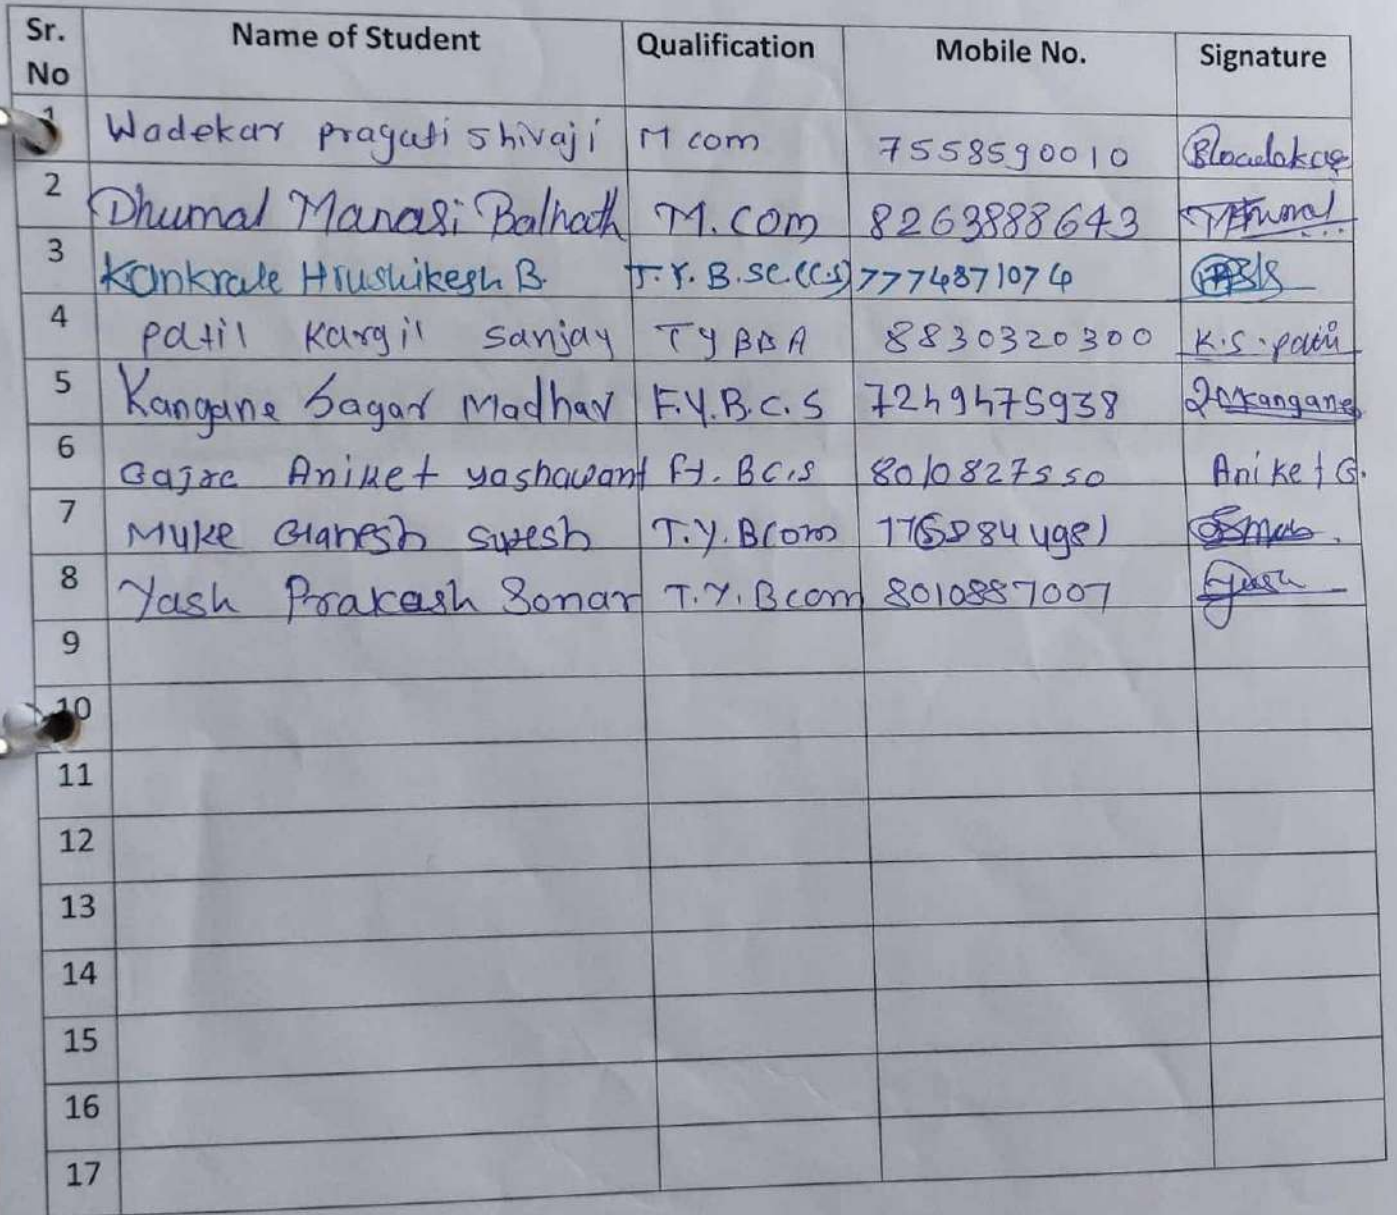 Sr. No Name of Student Qualification Mobile No. Signature
1 Wadekar pragati shivaji M com 7558590010
2 Dhumal Manasi Balnath M.COM 8263888643
3 Kankrale Hrushikesh B. T.Y.B.SC.(CS) 7774871074
4 patil Kargil sanjay TY BBA 8830320300 K.S.patil
5 Kangane Sagar Madhav F.Y.B.C.S 7249475938 Kangane
6 Gajre Aniket yashawant FY.BC.S 8010827550 Aniket G.
7 Muke Ganesh Suresh T.Y.BCom
8 Yash Prakash Sonar T.Y.Bcom 8010887007 Yash
9
10
11
12
13
14
15
16
17